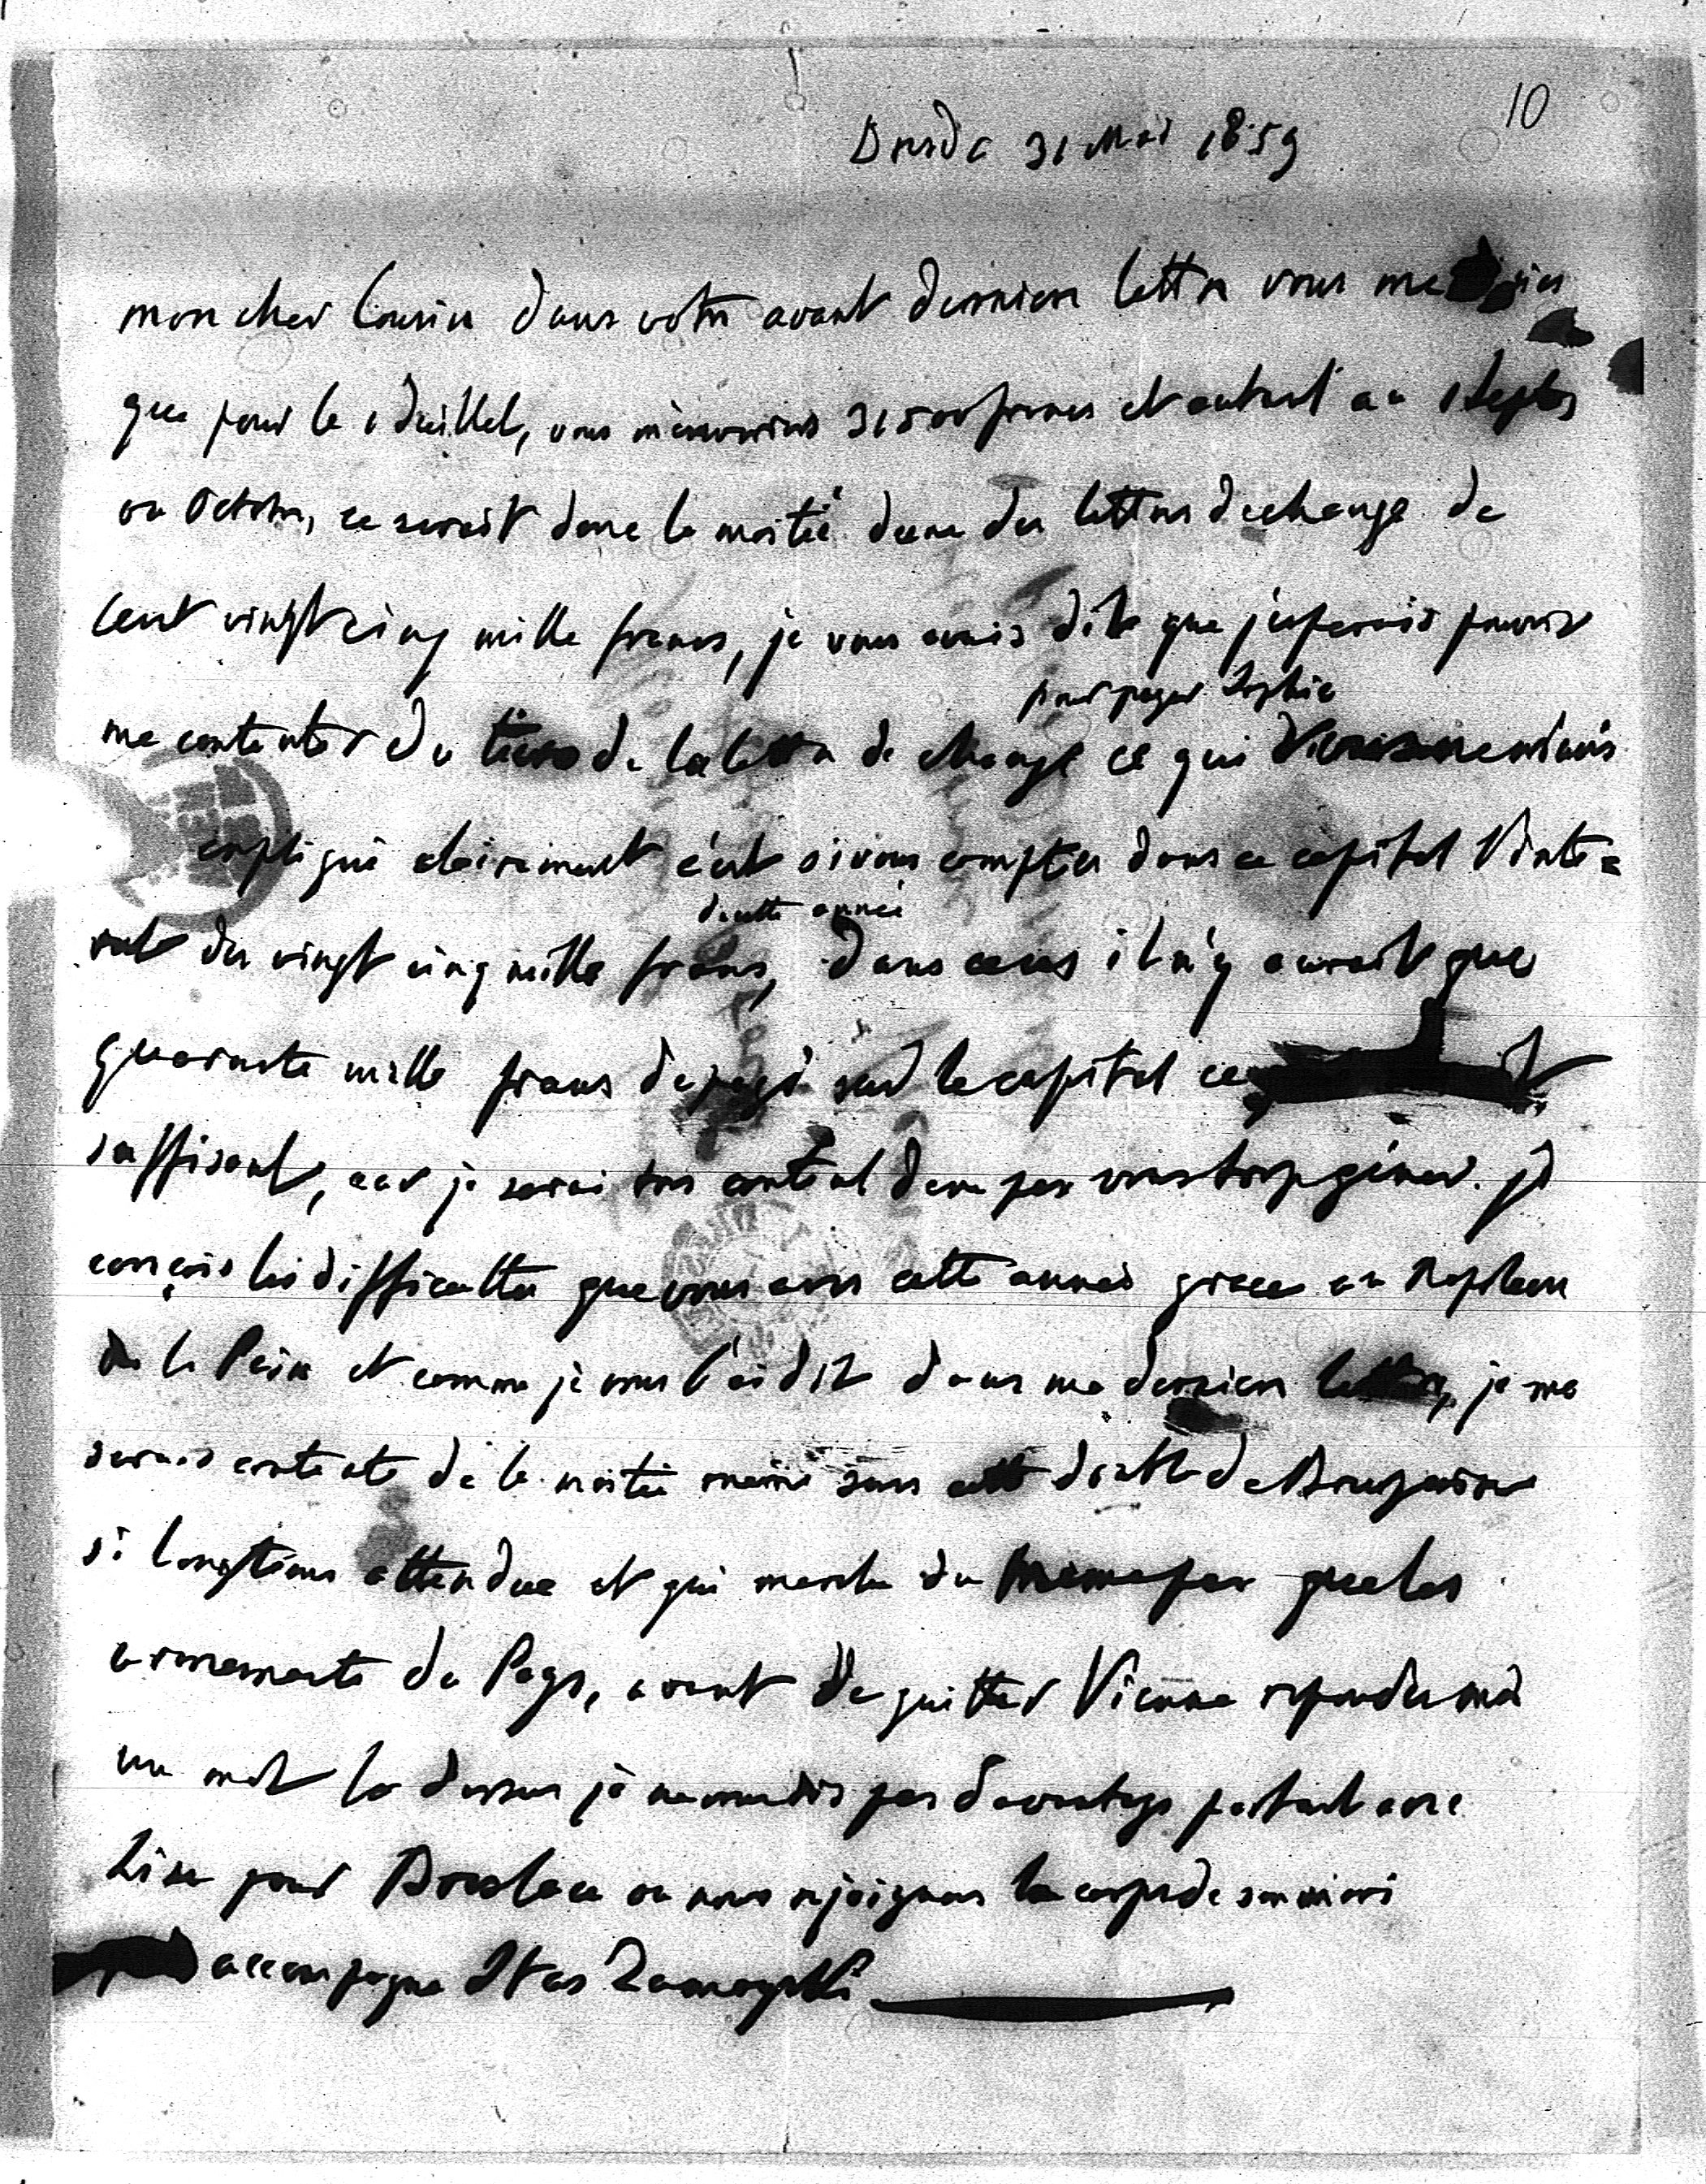 10
Dresde 31 Mai 1859
mon cher Cousin dans votre avant derniere lettre vous me
que pour le 1 Juillet, vous m'enverries 31500 francs et autant au 1 Septbr
ou Octobre, ce serait donc la moitié d'une des lettres d'echange de
Cent vingt cinq mille francs, je vous avais dite que j'esperais pouvoir
pour payer Sophie
me contenter du tiers de la lettre de change ce qui
expliqué clairement c'est si vous comptes dans ce capital l'inte=
de cette année
ret des vingt cinq mille francs, dans ce cas il n'y aurait que
quarante mille francs de payé sur le capital ce
suffisant, car je serai tres content de ne pas vous trop géner. je
conçois les difficultes que vous aves cette année grace au Napoleon
de la Paix et comme je vous l'ai dit dans ma derniere lettre, je me
serais contenté de la moitié meme sans cette
si longtems attendue et qui marche du meme pas que les
armements du Pays, avant de quitter Vienne repondes moi
un mot la dessus je ne vous dis pas davantage partant avec
Lise pour Breslau ou nous rejoignons le corps de son mari
accompagne Stas Zamoyski